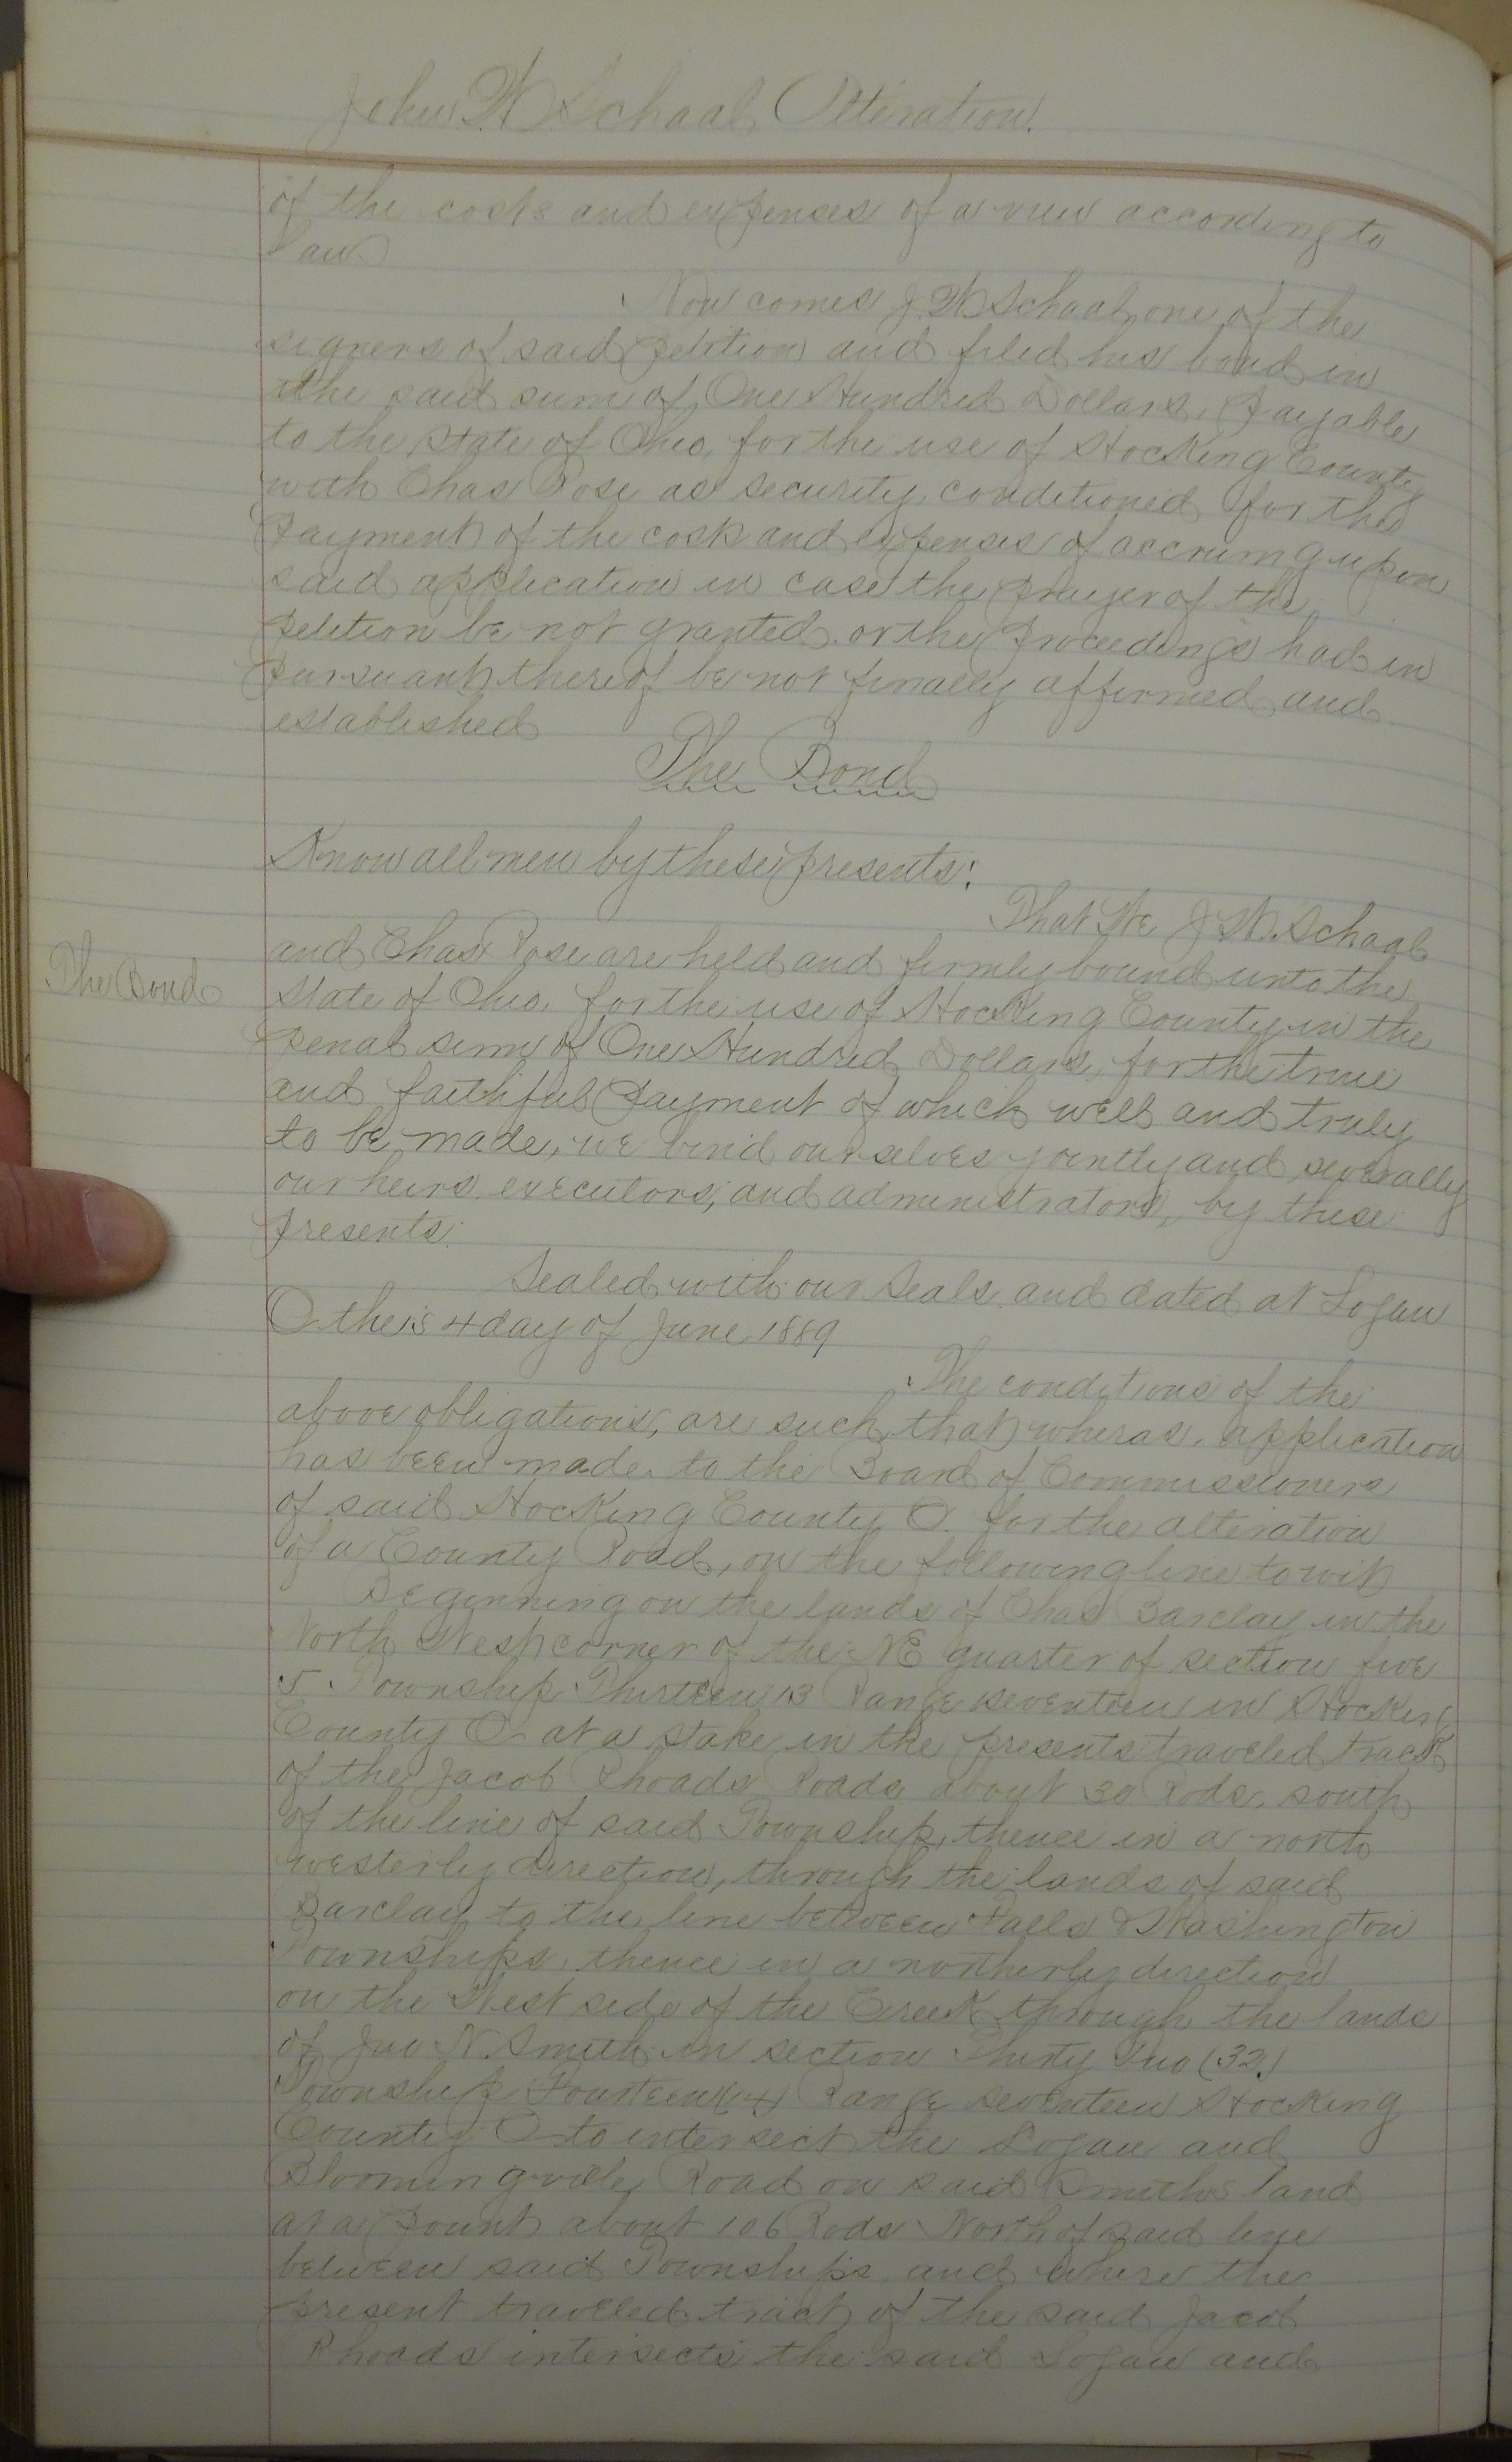 John W Schaal Alteration.
of the costs and expenses of a view according to
law.
Now comes J. W Schaal one of the
signers of said petition and filed his bond in
the said sum of One Hundred Dollars, Payable
to the State of Ohio, for the use of Hocking County
with Chas Rose as security, conditioned for the
Payment of the costs and expenses of accruing upon
said application in case the prayer of the
petition be not granted or the proceedings had in
pursuant thereof be not finally affirmed and
established
The Bond
Know all men by these presents:
That We, J W. Schaal
and Chas Rose are held and firmly bound unto the
The Bond
State of Ohio, for the use of Hocking County in the
penal sum of One Hundred Dollars, for the true
and faithful Payment of which well and truly
to be made, we bind ourselves jointly and severally
our heirs, executors, and administrators, by these
presents.
Sealed with our Seals and dated at Logan
O this 4 day of June 1889
The conditions of the
above obligations, are such, that wheras, application
has been made to the Board of Commissioners
of said Hocking County O. for the alteration
of a County Road, on the following line to wit
Beginning on the lands of Chas Barclay in the
North West corner of the NE quarter of section five
5 Township Thirteen 13 Range seventeen in Hocking
County O- at a stake in the presents traveled track
of the Jacob Rhoads Roads about 30 Rods, south
of the line of said Township, thence in a north
westerly direction, through the lands of said
Barclay to the line between Falls & Washington
Townships, thence in a northerly direction
on the West side of the Creek through the lands
of Jno N. Smith in section Thirty Two (32.)
Township Fourteen (14) Range seventeen Hocking
County O to intersect the Logan and
Bloomingville Road on said Smiths land
at a point about 106 Rods North of said line
between said Townships, and where the
present traveled tract of the said Jacob
Rhoads intersects the said Logan and